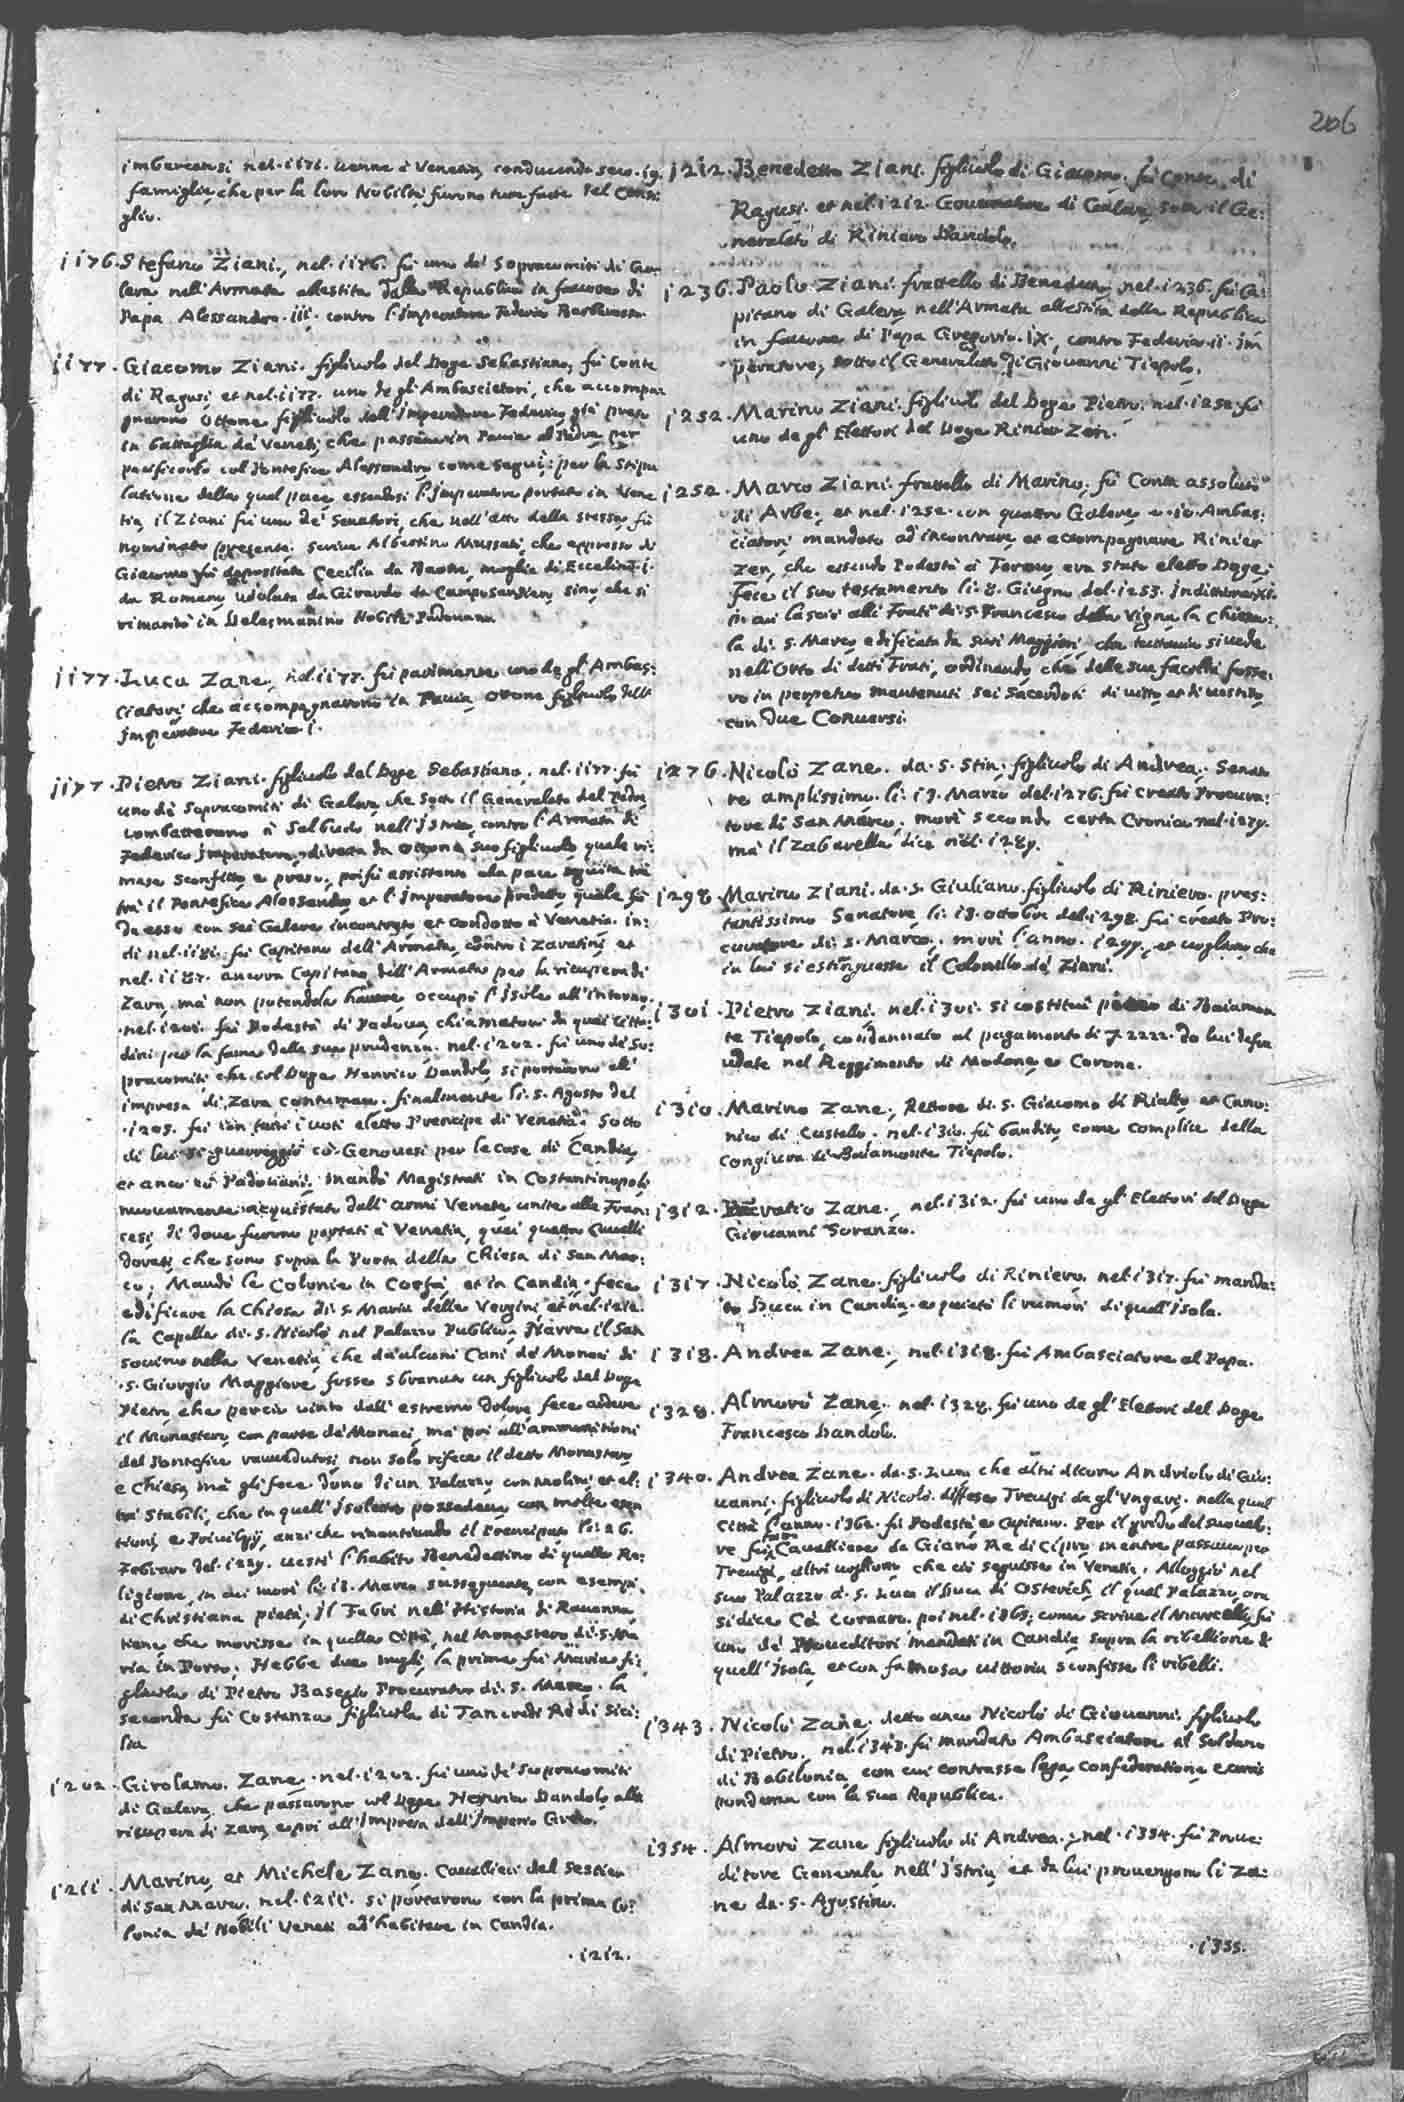 206
imbarcatosi nel. 1171. venne à Venetia, conducendo seco. 19.
famiglie, che per la loro Nobiltà, furono tutte fatte del Consi:
glio.
1176. Stefano Ziani, nel. 1176. fù uno de' Sopracomiti di Ga:
lera nell'Armata allestita dalla Republica in favore di
Papa Alessandro. iii. contro l'Imperatore Federico Barbarossa.
1177. Giacomo Ziani. figliuolo del Doge Sebastiano, fù Conte
di Ragusi, et nel. 1177. uno de gl'Ambasciatori, che accompa:
gnarono Ottone figliuolo dell'Imperatore Federico, già preso
in battaglia da' Veneti, che passava in Pavia al Padre, per
pacificarlo col Pontefice Alessandro, come seguì: per la stipu
latione della qual pace, essendosi l'Imperatore portato in Vene
tia, il Ziani fù uno de' Senatori, che nell'atto della stessa, fù
nominato presente. Scrive Albertino Mussati, che appresso di
Giacomo fù depositata Cecilia da Baone, moglie di Eccelino. i.
da Romano, violata da Girardo da Camposanpiero, sino che si
rimaritò in Delesmanino Nobile Padovano
1177. Luca Zane, nel. 1177. fù parimente uno de gl'Ambas:
ciatori, che accompagnarono in Pavia, Ottone figliuolo dell'
Imperatore Federico. i.
1177. Pietro Ziani. figliuolo del Doge Sebastiano, nel. 1177. fù
uno de' Sopracomiti di Galera, che sotto il Generalato del Padre,
combatterono à Salbudo, nell'Istria, contro l'Armata di
Federico Imperatore, diretta da Ottone suo figliuolo, quale ri:
mase sconfitto, e preso, poi fù assistente alla pace seguita trà
trà il Pontefice Alessandro, et l'Imperatore predetto, quale fù
da esso con sei Galere incontrato, et condotto à Venetia. in:
di nel. 1181. fù Capitano dell'Armata, contro i Zaratini, et
nel. 1187. ancora Capitano dell'Armata per la ricupera di
Zara, mà non potendola havere, occupò l'Isole all'intorno.
nel. 1201. fù Podestà di Padova, chiamatovi da quei Citta:
dini per la fama della sua prudenza. nel. 1202. fù uno de' So:
pracomiti che col Doge Henrico Dandolo, si portarono all'
impresa di Zara contumace. finalmente li. 5. Agosto del
.1205. fù con tutti i voti eletto Prencipe di Venetia. Sotto
di lui si guerreggiò co' Genovesi per le cose di Candia,
et anco co' Padovani, mandò Magistrati in Costantinopoli
nuovamente acquistato dall'armi Venete unite alle Fran:
cesi, di dove furono portati à Venetia, quei quattro Cavalli
dorati, che sono sopra la Porta della Chiesa di San Mar:
co; Mandò le Colonie in Corfù, et in Candia. fece
edificare la Chiesa di. S. Maria delle Vergini, et nel. 1212.
la Capella di. S. Nicolò nel Palazzo Publico. Narra il San
sovino nella Venetia, che da alcuni Cani de' Monaci di
.S. Giorgio Maggiore fusse sbranato un figliuolo del Doge
Pietro, che perciò vinto dall'estremo dolore fece ardere
il Monastero, con parte de' Monaci, mà poi all'ammonitioni
del Pontefice ravvedutosi, non solo rifece il detto Monastero
e Chiesa, mà gli fece dono di un Palazzo, con molini, et al:
tri stabili, che in quell'Isoletta possedeva, con molte esen
tioni, e Privilegij, anzi che rinontiando il Prencipato li. 26.
Febraro del. 1229. vestì l'habito Benedettino di quella Re:
ligione, in cui morì li. 13. Marzo susseguente, con esempi
di Christiana pietà. Il Fabri nell'Historia di Ravenna,
tiene che morisse in quella Città, nel Monastero di. S. Ma
ria in Porto. Hebbe due mogli, la prima fù Maria fi:
gliuola di Pietro Basegio Procurator di. S. Marco. la
seconda fù Costanza figliuola di Tancredi Rè di Sici:
lia
1202. Girolamo Zane, nel. 1202. fù uno de' Sopracomiti
di Galera, che passarono col Doge Henrico Dandolo, alla
ricupera di Zara, e poi all'Impresa dell'Imperio Greco.
1211. Marino, et Michele Zane. Cavallieri del Sestier
di San Marco. nel. 1211. si portarono con la prima Co:
lonia de' Nobili Veneti ad habitare in Candia.
.1212.
1212. Benedetto Ziani. figliuolo di Giacomo. fù Conte di
Ragusi. et nel. 1212. Governatore di Galera, sotto il Ge:
neralato di Riniero Dandolo.
1236. Paolo Ziani. frattello di Benedetto, nel. 1236. fù Ca:
pitano di Galera, nell'Armata allestita dalla Republica
in favore di Papa Gregorio. IX., contro Federico. ii. Im
peratore, sotto il Generalato di Giovanni Tiepolo.
1252. Marino Ziani. figliuolo del Doge Pietro. nel. 1252. fù
uno de gl'Elettori del Doge Rinier Zen.
1252. Marco Ziani. frattello di Marino, fù Conte assoluto
di Arbe, et nel. 1252. con quattro Galere, e. 10. Ambas:
ciatori, mandato ad incontrare, et accompagnare Rinier
Zen, che essendo Podestà di Fermo, era stato eletto Doge.
Fece il suo testamento li. 8. Giugno del. 1253. Inditione XI.
in cui lasciò alli Frati di. S. Francesco della Vigna, la Chiesio:
la di. S. Marco, edificata da suoi Maggiori, che tuttavia si vede
nell'Orto di detti Frati, ordinando, che delle sue facoltà fosse:
ro in perpetuo mantenuti sei Sacerdoti di vitto, et di vestito,
con due Conversi.
1276. Nicolò Zane. da. S. Stin. figliuolo di Andrea. Senato
re amplissimo. li. 19. Marzo del. 1276. fù creato Procura:
tore di San Marco. morì secondo certa Cronica nel. 1279.
mà il Zabarella dice nel. 1289.
1298. Marino Ziani. da. S. Giuliano. figliuolo di Riniero. pres:
tantissimo Senatore, li. 13. ottobre del. 1298. fù creato Pro:
curatore di. S. Marco. morì l'anno. 1299. et vogliono che
in lui si estinguesse il Colonello de' Ziani.
1301. Pietro Ziani, nel. 1301. si costituì pieggio di Baiamon
te Tiepolo, condannato al pagamento di £ 2222. da lui defra
udate nel Reggimento di Modone, e Corone.
1310. Marino Zane, Rettore di. S. Giacomo di Rialto, et Cano:
nico di Castello. nel. 1310. fù bandito, come complice della
Congiura di Baiamonte Tiepolo.
1312. Zane, nel. 1312. fù uno de gl'Elettori del Doge
Giovanni Soranzo.
1317. Nicolò Zane. figliuolo di Riniero, nel. 1317. fù manda:
to Duca in Candia, e quietò li rumori di quell'Isola.
1318. Andrea Zane, nel. 1318. fù Ambasciatore al Papa.
1328. Almorò Zane, nel. 1328. fù uno de gl'Elettori del Doge
Francesco Dandolo.
1340. Andrea Zane. da. S. Luca che altri dicono Andriolo di Gio:
vanni. figliuolo di Nicolò. diffese Trevigi da gl'Ungari. nella qual
Città l'anno. 1362. fù Podestà, e Capitano. Per il grido del suo valo:
re fù fatto Cavalliere da Giano Rè di Cipro, mentre passava per
Trevigi, altri vogliono, che ciò seguisse in Venetia. Alloggiò nel
suo Palazzo di. S. Luca il Duca di Osterich, il qual Palazzo, ora
si dice Cà Cornaro. poi nel. 1365, come scrive il Marcello, fù
uno de' Proveditori mandati in Candia, sopra la ribellione di
quell'Isola, et con famosa vittoria sconfisse li ribelli.
1343. Nicolò Zane, detto anco Nicolò di Giovanni. figliuolo
di Pietro, nel. 1343. fù mandato Ambasciatore al Soldano
di Babilonia, con cui contrasse lega, confederatione, e corris
pondenza con la sua Republica.
1354. Almorò Zane figliuolo di Andrea, nel. 1354. fù Prove:
ditore Generale, nell'Istria, et da lui provengono li Za:
ne da. S. Agustino.
.1355.